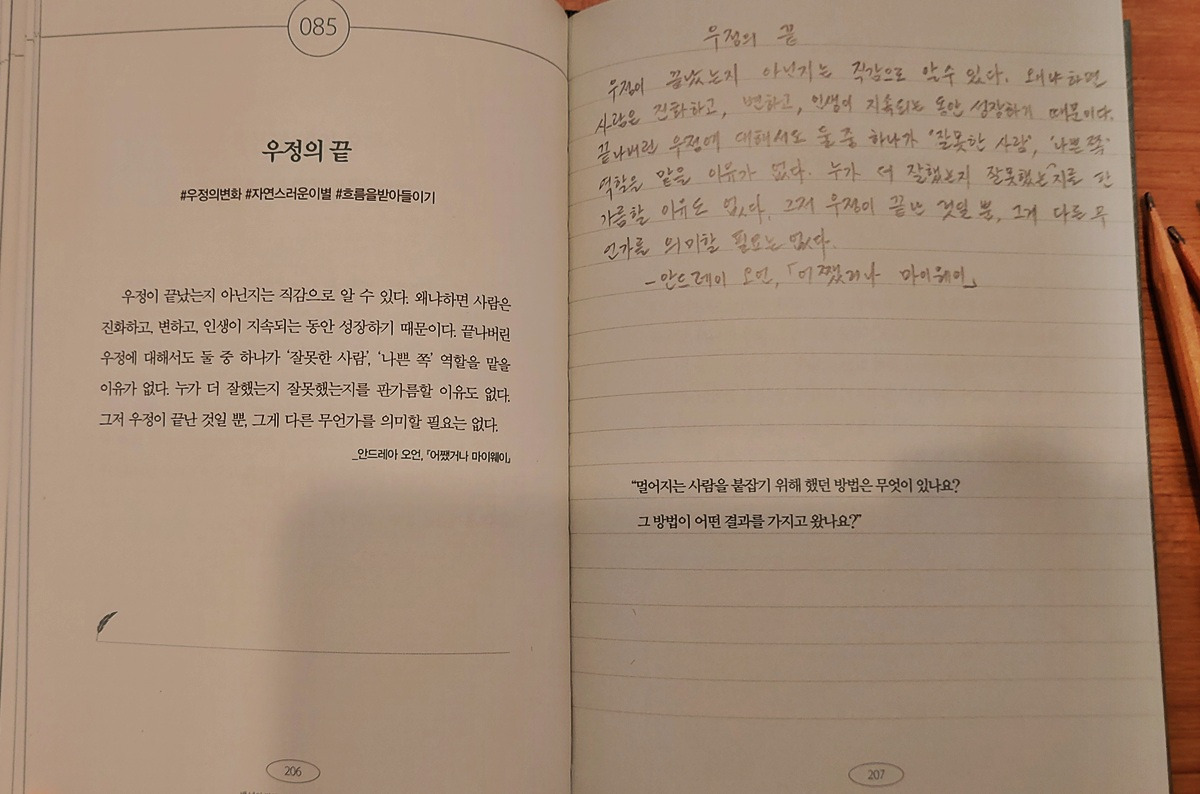 085
우정의 끝
#우정의변화 #자연스러운이별 #흐름을받아들이기
우정이 끝났는지 아닌지는 직감으로 알 수 있다. 왜냐하면 사람은
진화하고, 변하고, 인생이 지속되는 동안 성장하기 때문이다. 끝나버린
우정에 대해서도 둘 중 하나가 ‘잘못한 사람’, ‘나쁜 쪽’ 역할을 맡을
이유가 없다. 누가 더 잘했는지 잘못했는지를 판가름할 이유도 없다.
그저 우정이 끝난 것일 뿐, 그게 다른 무언가를 의미할 필요는 없다.
_안드레아 오언, 「어쨌거나 마이웨이」
206
우정의 끝
우정이 끝났는지 아닌지는 직감으로 알 수 있다. 왜냐하면
사람은 진화하고, 변하고, 인생이 지속되는 동안 성장하기 때문이다.
끝나버린 우정에 대해서도 둘 중 하나가 ‘잘못한 사람’, ‘나쁜 쪽’
역할을 맡을 이유가 없다. 누가 더 잘했는지 잘못했는지를 판
가름할 이유도 없다. 그저 우정이 끝난 것일 뿐, 그게 다른 무
언가를 의미할 필요는 없다.
-안드레이 오언, 「어쨌거나 마이웨이」
“멀어지는 사람을 붙잡기 위해 했던 방법은 무엇이 있나요?
그 방법이 어떤 결과를 가지고 왔나요?”
207